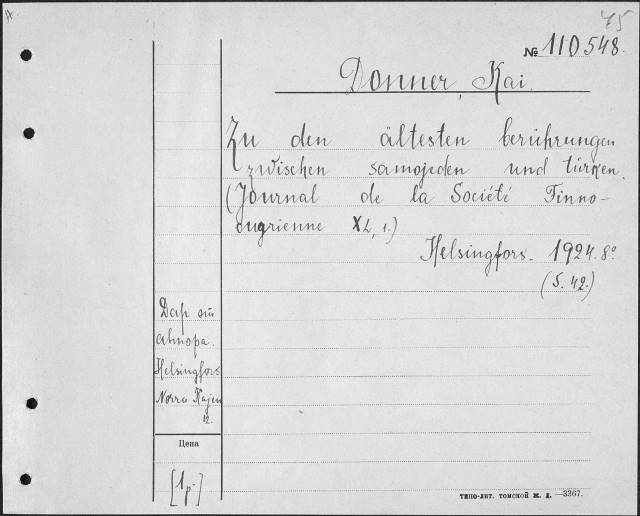 75
№ 110548.
Donner, Kai.
Zu den ältesten berührungen
zwischen samojeden und türken.
(Journal de la Société Finno-
ougrienne XL, 1.)
Helsingfors. 1924. 8°
(S. 42.)
Дар от
автора.
Helsingfors
Norra Kajen
12.
Цена
[1 р.]
ТИПО-ЛИТ. ТОМСКОЙ Ж. Д. —3367.